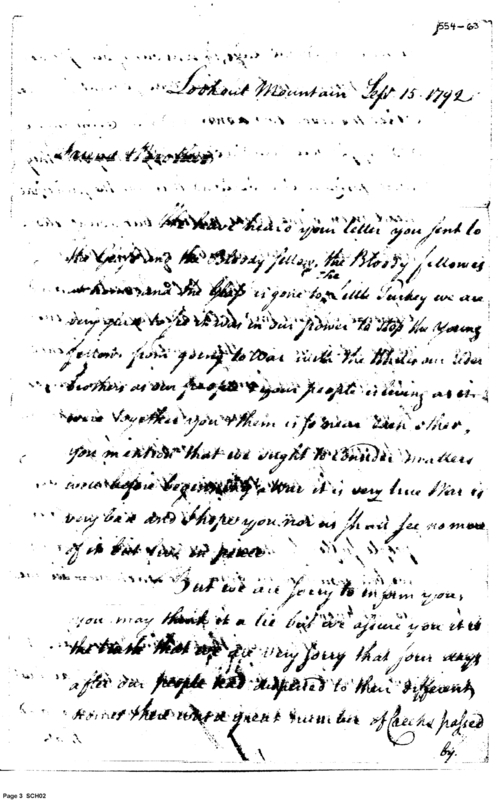 J554-63
Lookout Mountain Sept. 15. 1792
Friend & Brother
We have heard your letter you sent to
the Glass and the Bloody fellow, the Bloody fellow is
at home and the Glass is gone to the Little Turkey we are
very glad to so it was in our power to stop the Young
fellows from going to War with the Whites our Elder
brothers as our people & your people is living as it
were together you & them is so near Each other,
you mention that we ought to Consider matters
well before beginning a War it is very true War is
very bad and I hope you nor us shall see no more
of it but live in peace
But we are sorry to inform you,
you may think it a lie but we assure you it is
the truth that we are very sorry that four days
after our people had dispersed to their different
homes there was a great number of Creeks passed
by.
Page 3 SCH02